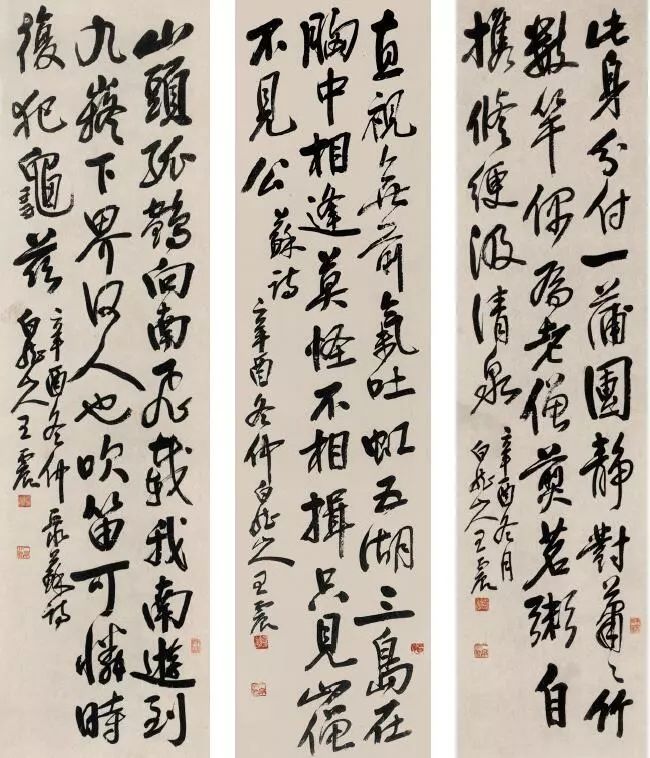 此身分付一蒲團靜對蕭〻竹
數竿偶為老僧煎茗粥自
攜修綆汲清泉
辛酉冬月
白龍山人王震
直視無前氣吐虹五湖三島在
胸中相逢莫怪不相揖只見山僧
不見公
蘇詩
辛酉冬仲白龍山人王震
山頭孤鶴向南飛載我南遊到
九嶷下界何人也吹笛可憐時
復犯龜茲
辛酉冬仲录蘇詩
白龍山人王震